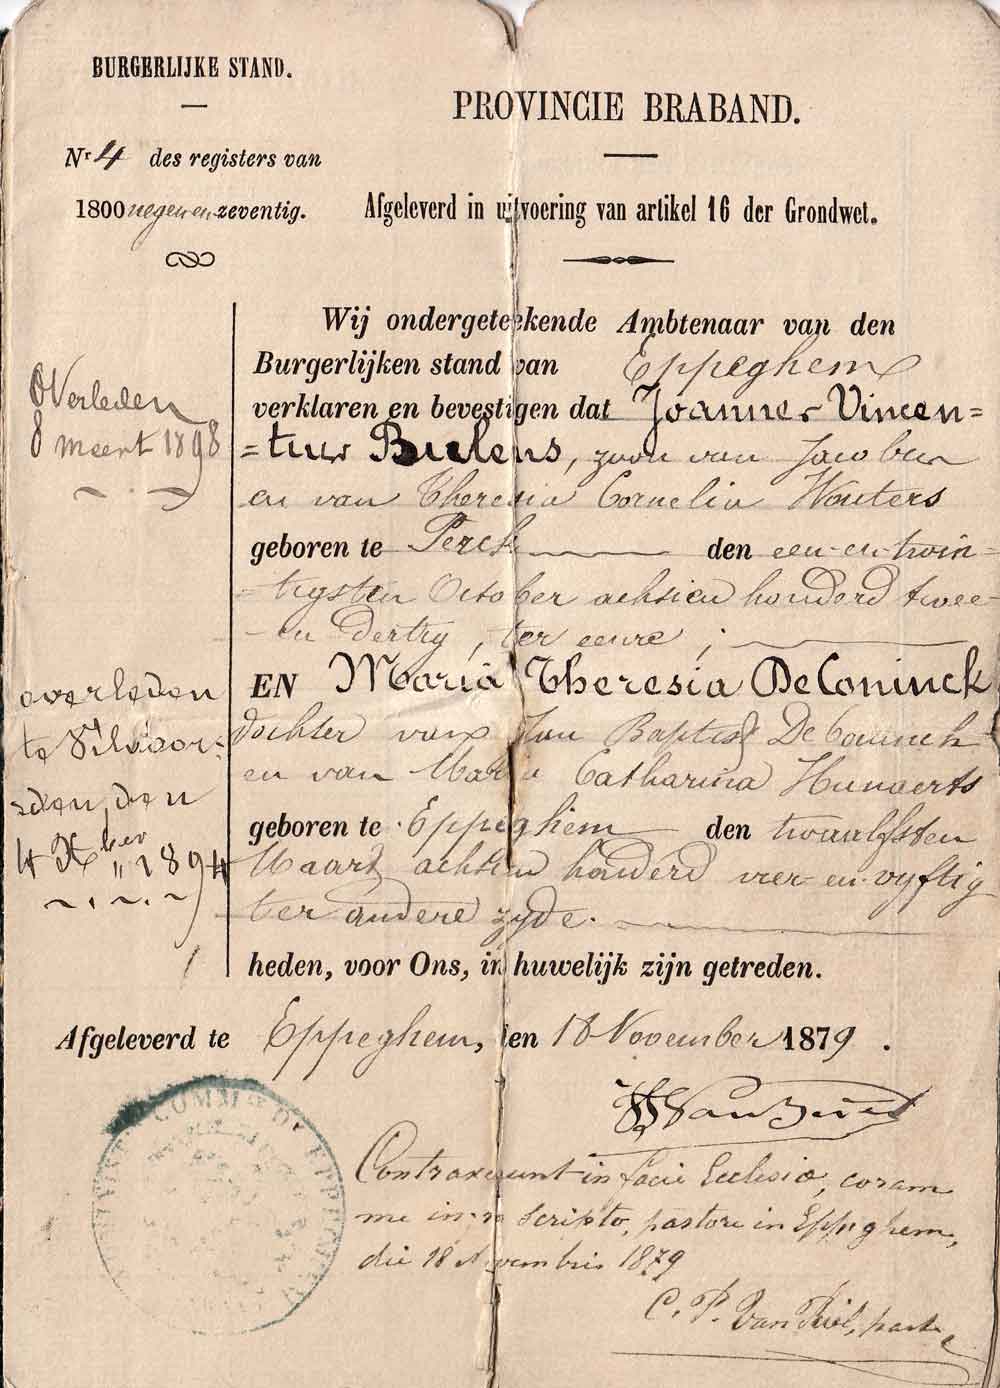 BURGERLIJKE STAND.
Nr 4 des registers van
1800 negen en zeventig.
PROVINCIE BRABAND.
Afgeleverd in uitvoering van artikel 16 der Grondwet.
Wij ondergeteekende Ambtenaar van den
Burgerlijken stand van Eppeghem
verklaren en bevestigen dat Joannes Vincen=
=tius Bulens, zoon van Jacobus
en van Theresia Cornelia Wouters
geboren te Perck den een-en-twin-
-tigsten October achtien honderd twee-
-en dertig, ter eenre;
EN Maria Theresia De Coninck
dochter van Jan Baptist De Coninck
en van Maria Catharina Hunaerts
geboren te Eppeghem den twaalfsten
Maart achtien honderd vier-en-vyftig
ter andere zyde.
heden, voor Ons, in huwelijk zijn getreden.
Overleden
8 meert 1898
overleden
te Vilvoor-
den den
4 Xber 1894
Afgeleverd te Eppeghem, den 18 November 1879.
Contraxerunt in facie Ecclesiæ, coram
me infra scripto, pastore in Eppeghem,
die 18 Novembris 1879
C. P. Van Riel, past.